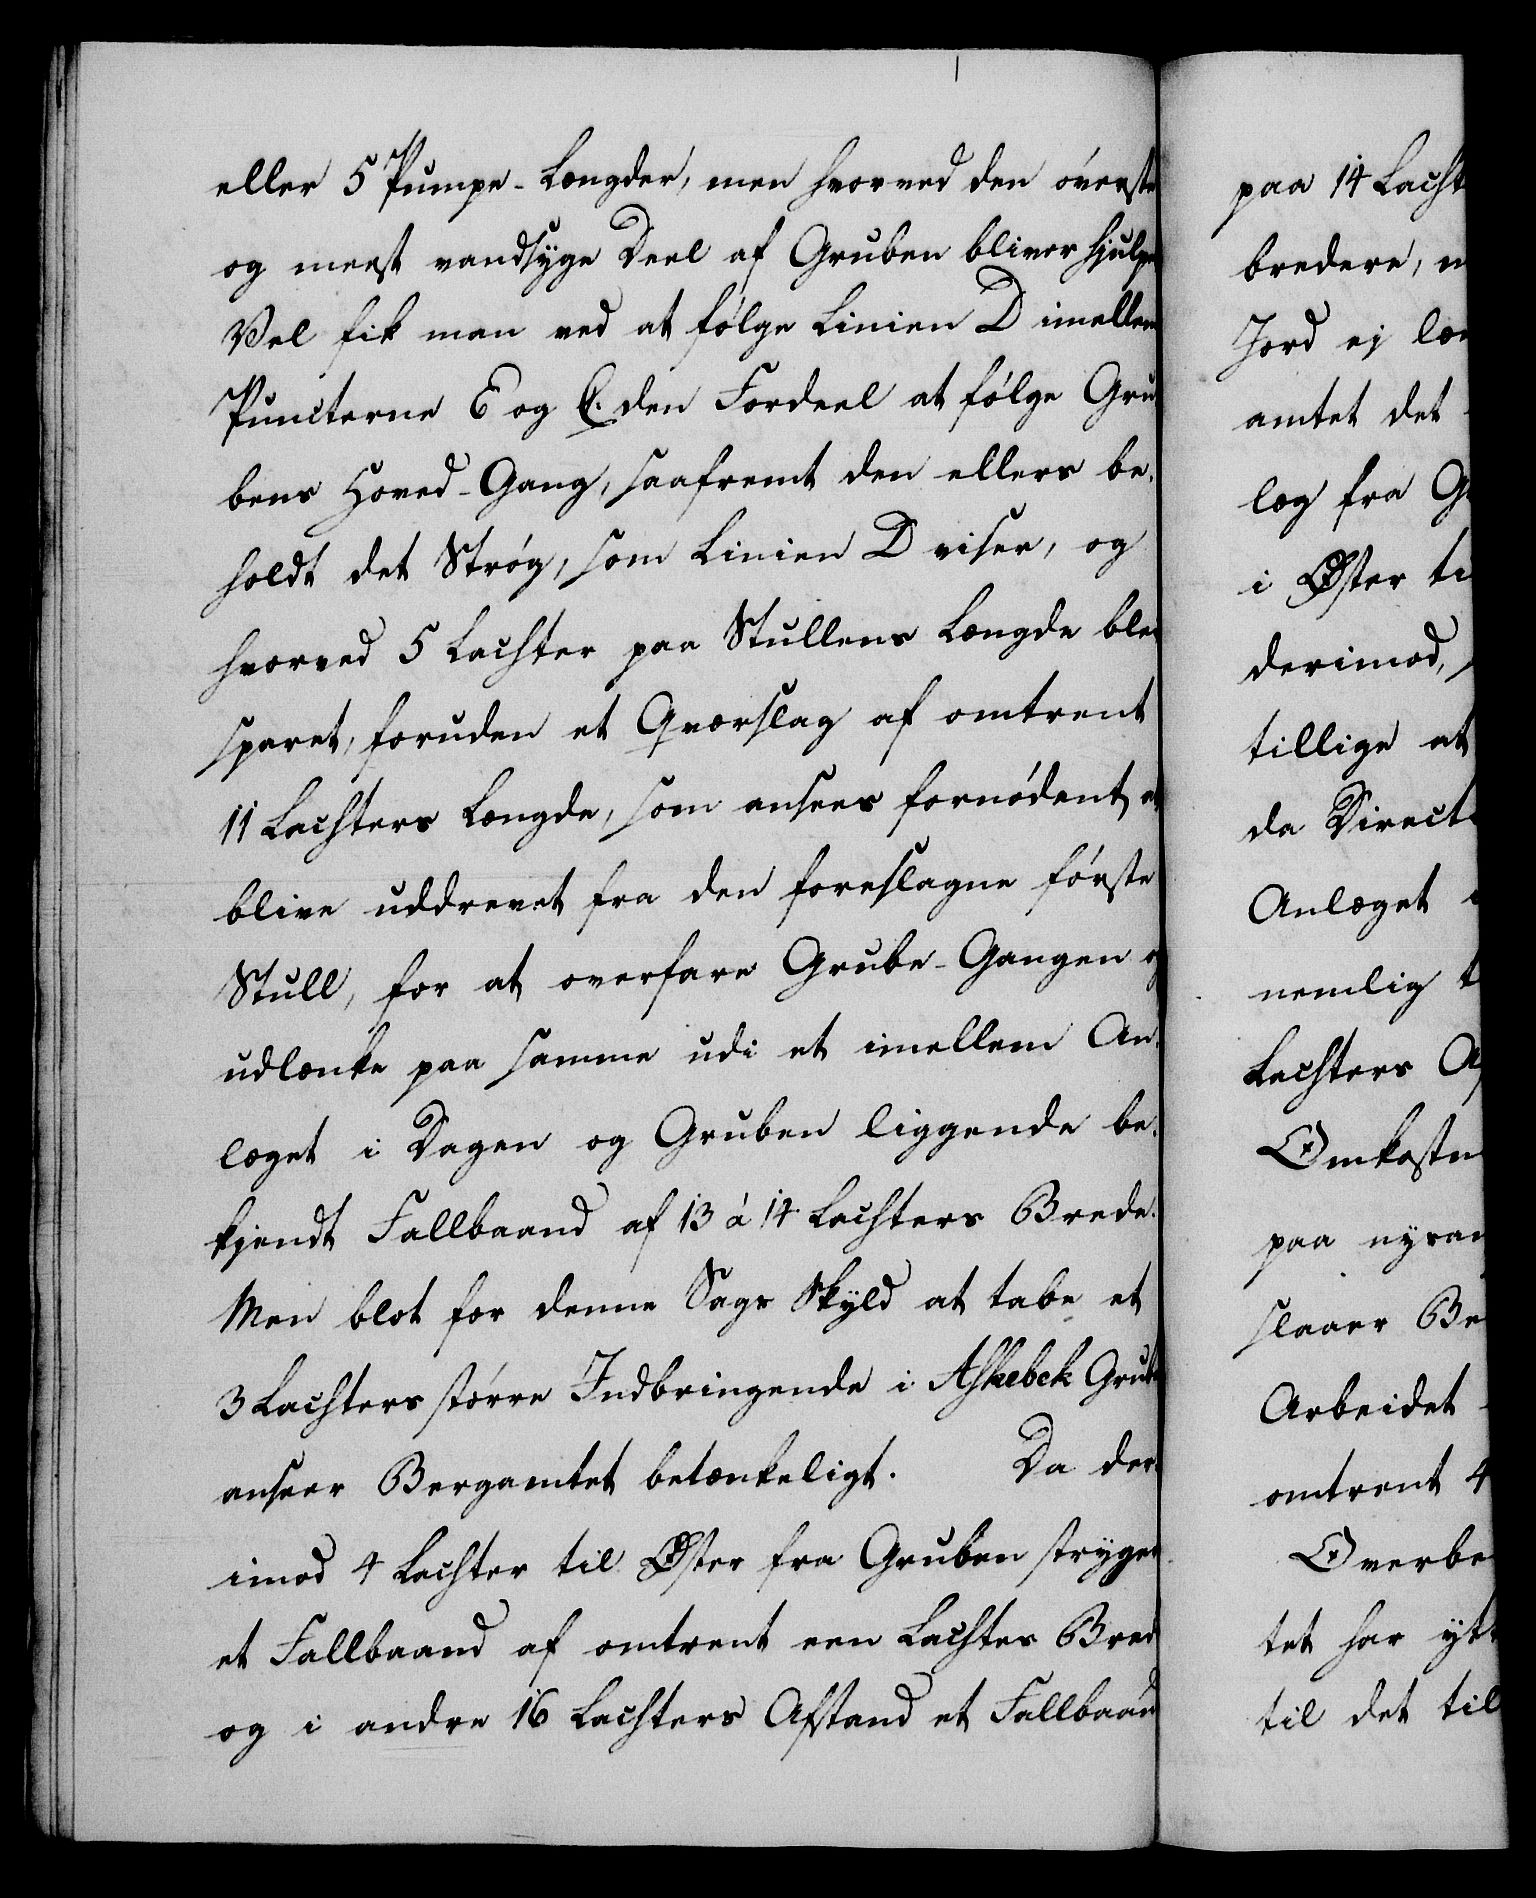 eller 5 Pumpe-Længder, men hvorved den øverste
og meest vandsyge Deel af Gruben bliver hjulpen
Vel fik man ved at følge Linien D imellem
Puncterne E og C. den Fordeel at følge Gru
bens Hoved-Gang, saafremt den ellers be-
holdt det Strøg, som Linien D viser, og
hvorved 5 Lachter paa Stullens Længde blev
sparet, foruden et Qværslag af omtrent
11 Lachters Længde, som ansees fornødent at
blive uddrevet fra den foreslagne første
Stull, for at overfare Grube-Gangen og
udlænke paa samme udi et imellem An-
læget i Dagen og Gruben liggende be-
kjendt Fallbaand af 13 à 14 Lachters Brede.
Men blot for denne Sags Skyld at tabe et
3 Lachters større Indbringende i Askebek Grube
anseer Bergamtet betænkeligt. Da der-
imod 4 Lachter til Øster fra Gruben stryger
et Fallbaand af omtrent een Lachter Bred
og i andre 16 Lachters Afstand et Fallbaand
paa 14 Lacht
bredere, m
Jord ej læn
amtet det
læg fra G
i Øster ti
derimod,
tillige at
da Direct
Anlæget
nemlig t
Lachters Af
Omkostn
paa nysan
slaaer Be
Arbeidet
omtrent 4
Overbe
tet har ytt
til det til